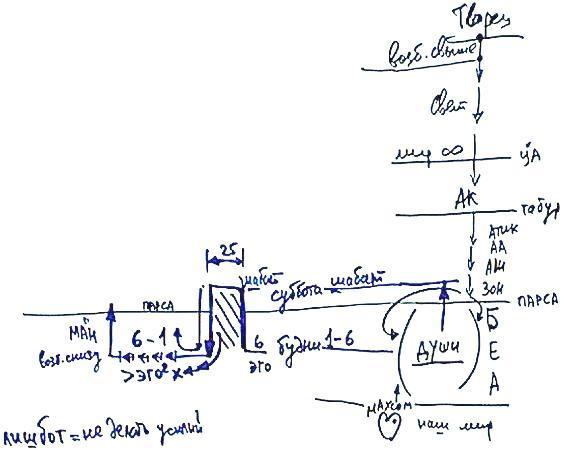 Творец
возб. свыше
свет
мир ∞
ЦА
АК
табур
АТИК
АА
АВИ
ЗОН
25
шабат
суббота - шабат
ПАРСА
ПАРСА
МАН
возб. снизу
6-1
>эго² x
6
эго
будни 1-6
ДУШИ
Б
Е
А
МАХСОМ
наш мир
лишбот = не делать усилий